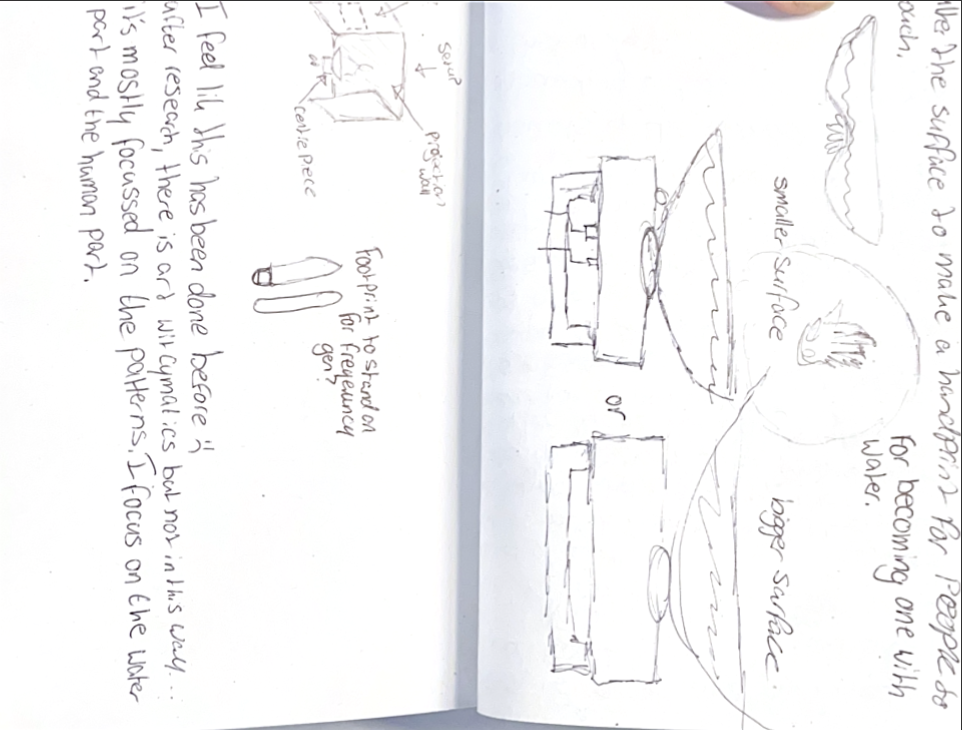 the surface to make a handprint for people to
ouch.
For becoming one with
water.
smaller surface
or
bigger surface.
setup?
projection?
wall
centre piece
Footprint to stand on
for frequency
gen?
I feel lik this has been done before :(
after research, there is art wit cymatics but not in this way...
it's mostly focussed on the patterns. I focus on the water
part and the human part.